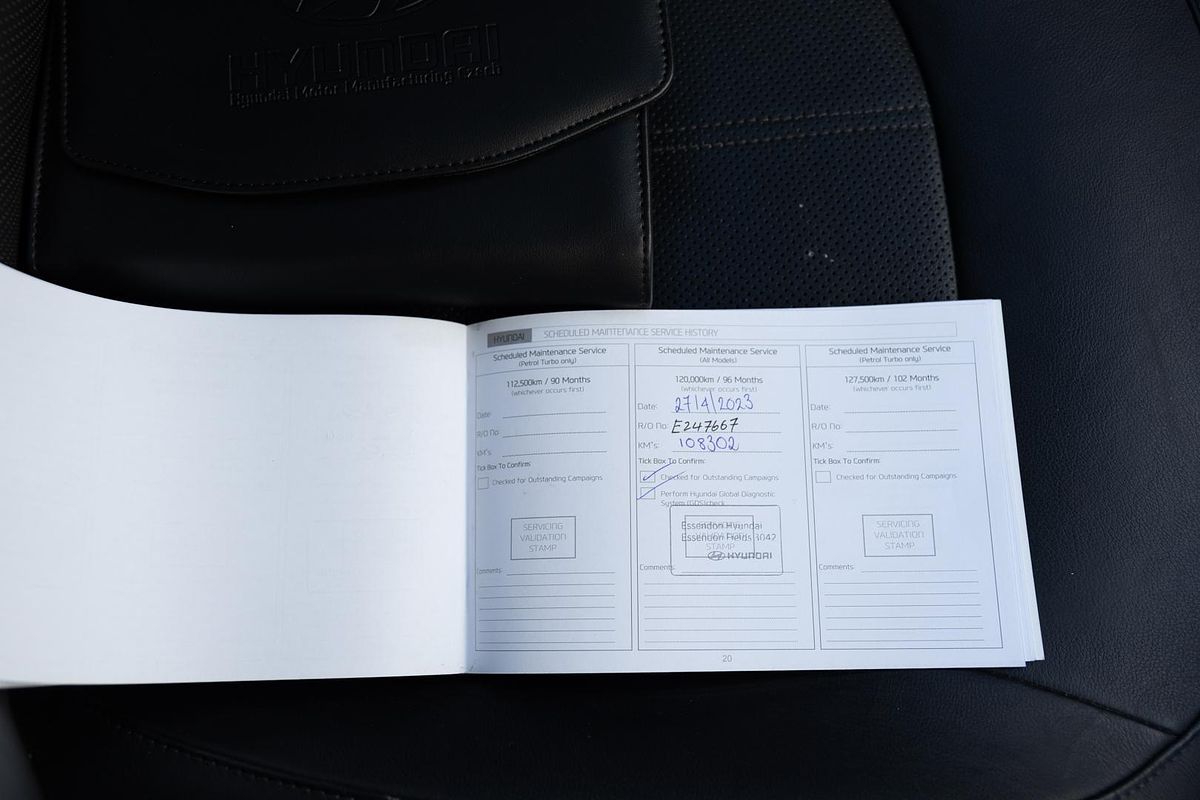 HYUNDAI
Hyundai Motor Manufacturing Czech
HYUNDAI SCHEDULED MAINTENANCE SERVICE HISTORY
Scheduled Maintenance Service
(Petrol Turbo only)
112,500km / 90 Months
(whichever occurs first)
Date:
R/O No:
KM's:
Tick Box To Confirm:
Checked for Outstanding Campaigns
SERVICING
VALIDATION
STAMP
Comments:
Scheduled Maintenance Service
(All Models)
120,000km / 96 Months
(whichever occurs first)
Date: 27/4/2023
R/O No: E247667
KM's: 108302
Tick Box To Confirm:
Checked for Outstanding Campaigns
Perform Hyundai Global Diagnostic
System (GDS)check
Essendon Hyundai
Essendon Fields 3042
STAMP
HYUNDAI
Comments:
Scheduled Maintenance Service
(Petrol Turbo only)
127,500km / 102 Months
(whichever occurs first)
Date:
R/O No:
KM's:
Tick Box To Confirm:
Checked for Outstanding Campaigns
SERVICING
VALIDATION
STAMP
Comments:
20